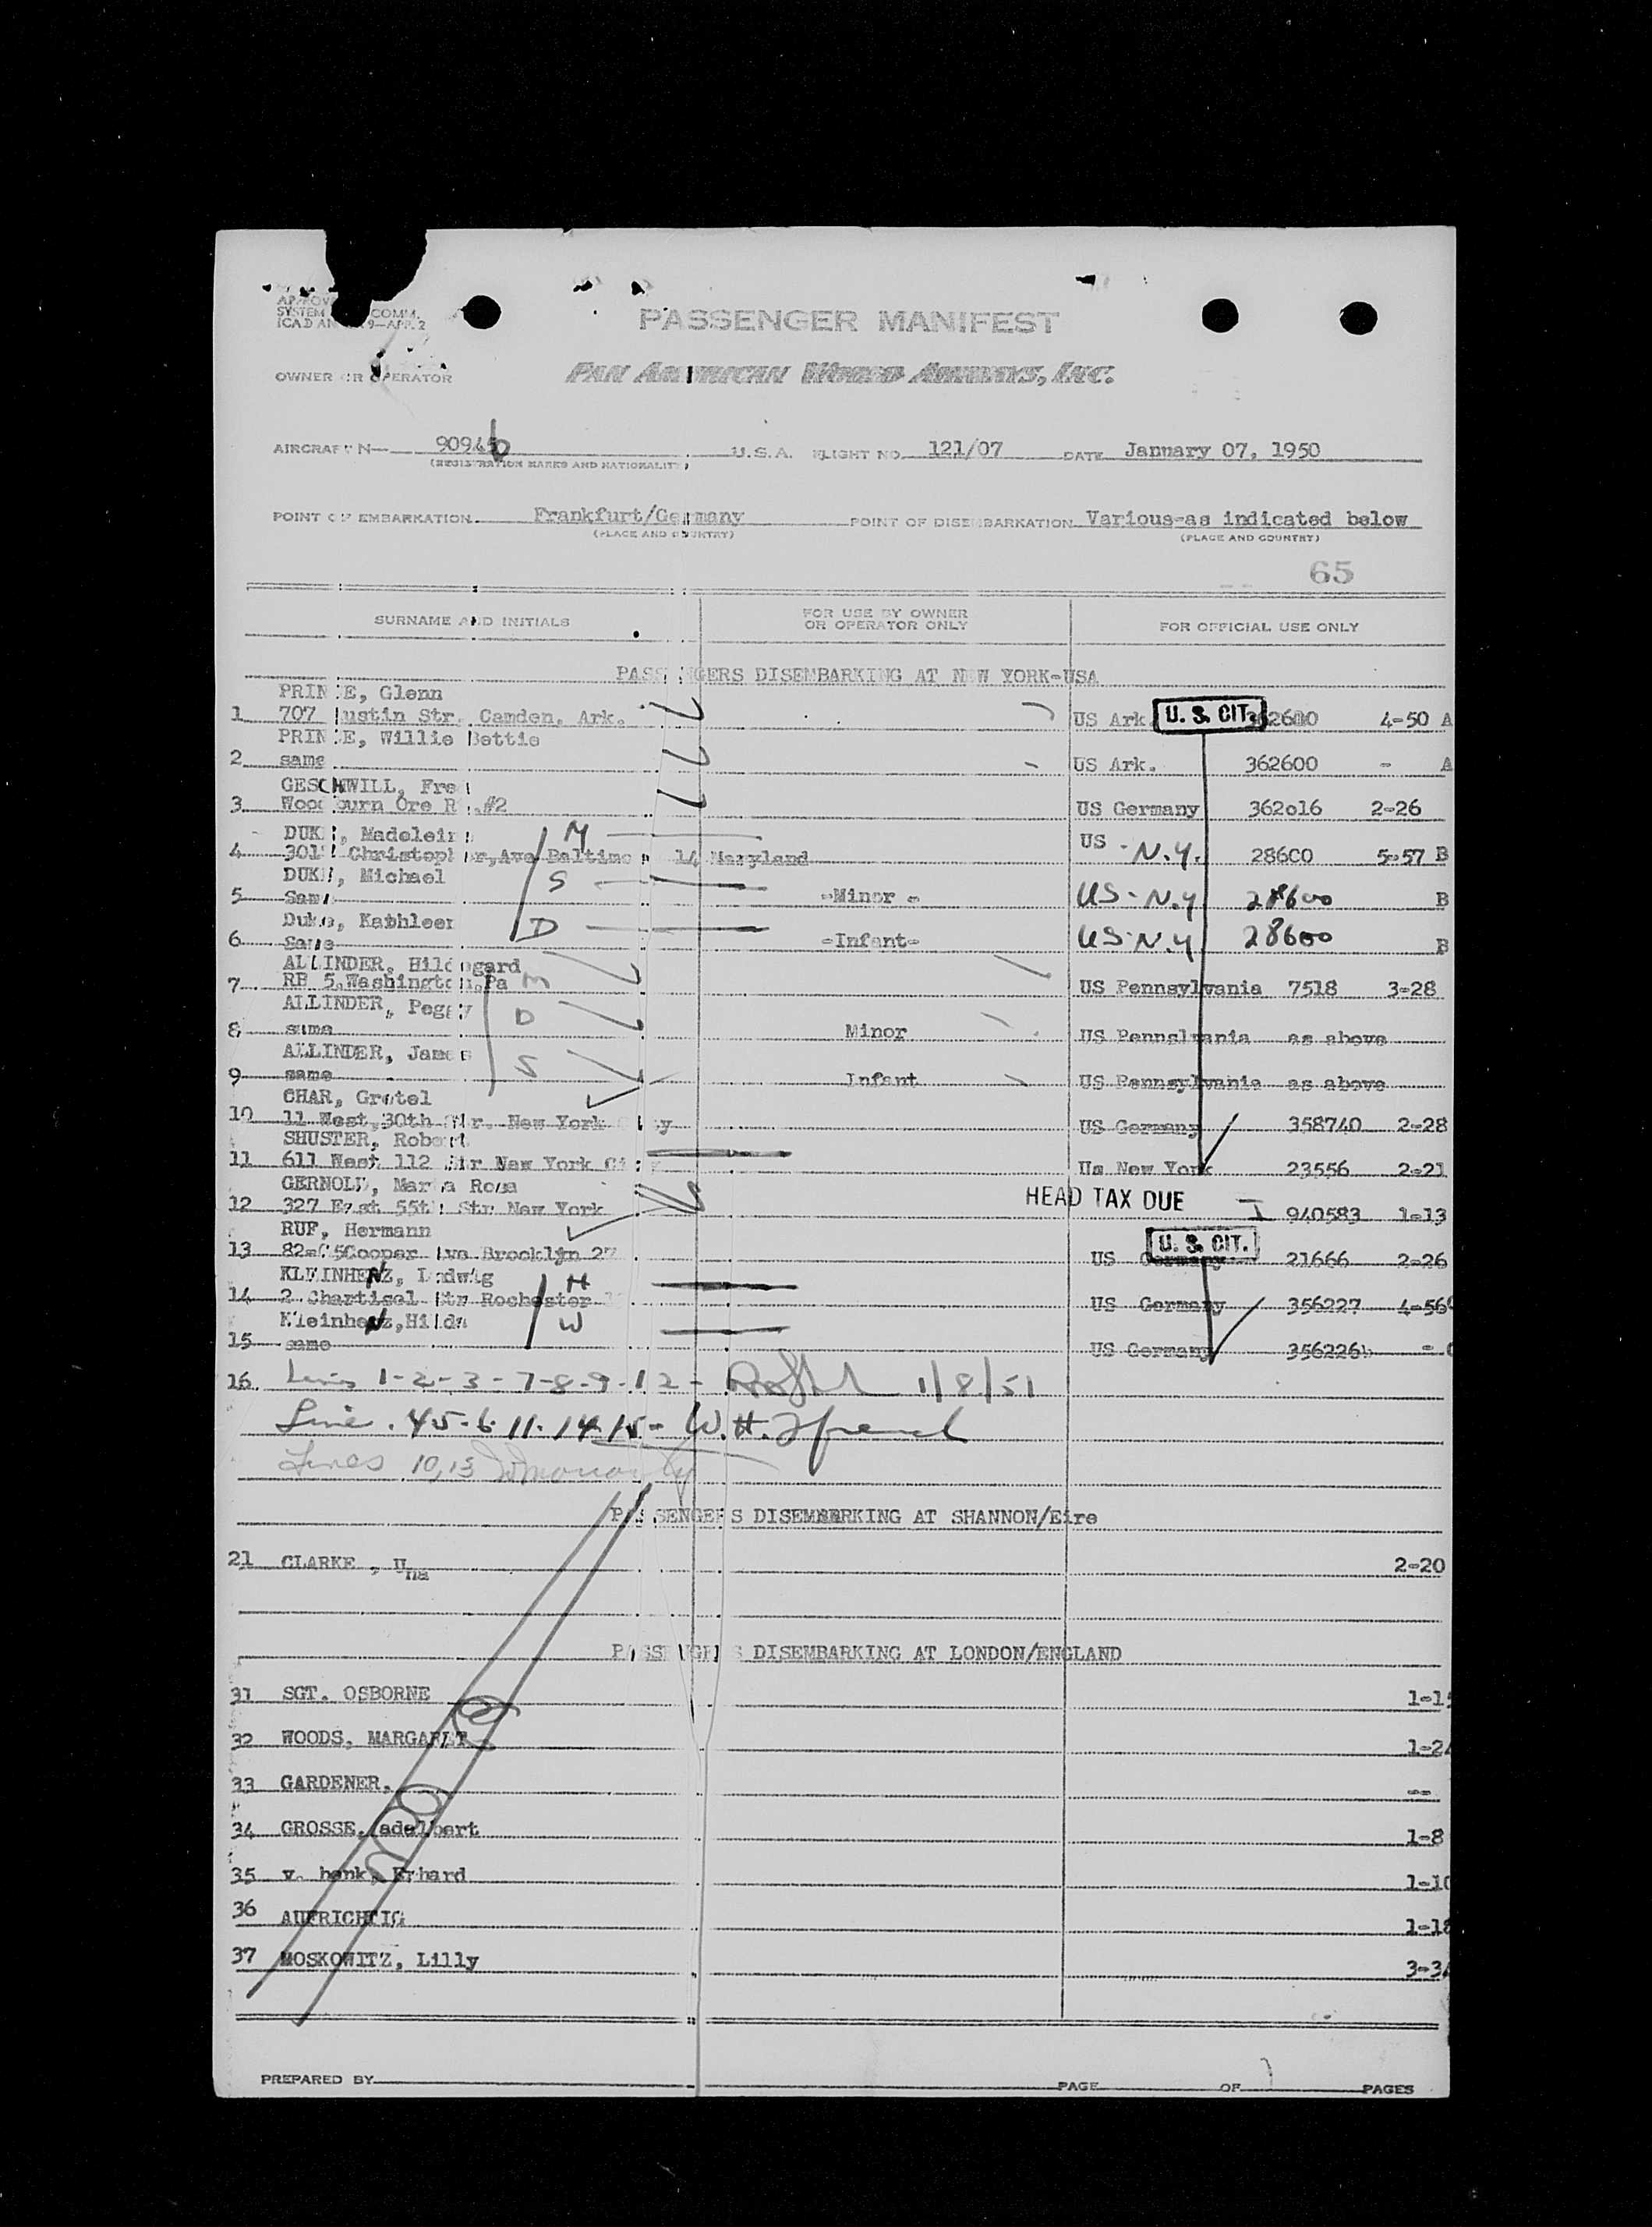 PASSENGER MANIFEST
OWNER OR OPERATOR PAN AMERICAN WORLD AIRWAYS, INC.
AIRCRAFT N— 90946 U.S.A. FLIGHT NO. 121/07 DATE January 07, 1950
(REGISTRATION MARKS AND NATIONALITY)
POINT OF EMBARKATION Frankfurt/Germany POINT OF DISEMBARKATION Various-as indicated below
(PLACE AND COUNTRY) (PLACE AND COUNTRY)
65
SURNAME AND INITIALS FOR USE BY OWNER OR OPERATOR ONLY FOR OFFICIAL USE ONLY
PASSENGERS DISEMBARKING AT NEW YORK-USA
PRINCE, Glenn
1 707 ustin Str. Camden. Ark. US Ark. U. S. CIT. 362600 4-50 A
PRINCE, Willie Bettie
2 same US Ark. 362600 - A
GESCHWILL, Fre
3 Woodburn Ore R #2 US Germany 362016 2-26
DUKE, Madelein M
4 Christopher, Ave Baltimo 14 Maryland US - N.Y. 28600 5-57 B
DUKE, Michael S
5 Same -Minor - US - N.Y 28600 B
Duke, Kathleen D
6 Same -Infant- US-N.Y. 28600 B
ALLINDER, Hildegard
7 RB 5,Washington,Pa M US Pennsylvania 7518 3-28
ALLINDER, Peggy D
8 same Minor US Pennslvania as above
ALLINDER, James S
9 same Infant US Pennsylvania as above
CHAR, Gretel
10 11 West,30th Str. New York City US Germany 358740 2-28
SHUSTER, Robert
11 611 West 112 Str New York Ci Us New York 23556 2-21
GERNOLD, Maria Rosa
12 327 East 55th Str New York HEAD TAX DUE I 940583 1-13
RUF, Hermann
13 82-05Cooper Ave Brooklyn 27 US Germany U. S. CIT. 21666 2-26
KLEINHENZ, Ludwig H
14 2 Chartisel Str Rochester US Germany 356227 4-56
Kleinhenz,Hilda W
15 same US Germany 356226 -
16 Lines 1-2-3-7-8-9-12- 1/8/51
Line . 4 5-6-11-14 15- W.H. French
Lines 10,13
PASSENGERS DISEMBARKING AT SHANNON/Eire
21 CLARKE , Una 2-20
PASSENGERS DISEMBARKING AT LONDON/ENGLAND
31 SGT. OSBORNE
32 WOODS, MARGARET
33 GARDENER, --
34 GROSSE, adelbert 1-8
35 v. henk, Erhard 1-10
36 AUFRICHTIG 1-18
37 MOSKOWITZ, Lilly
PREPARED BY PAGE OF PAGES